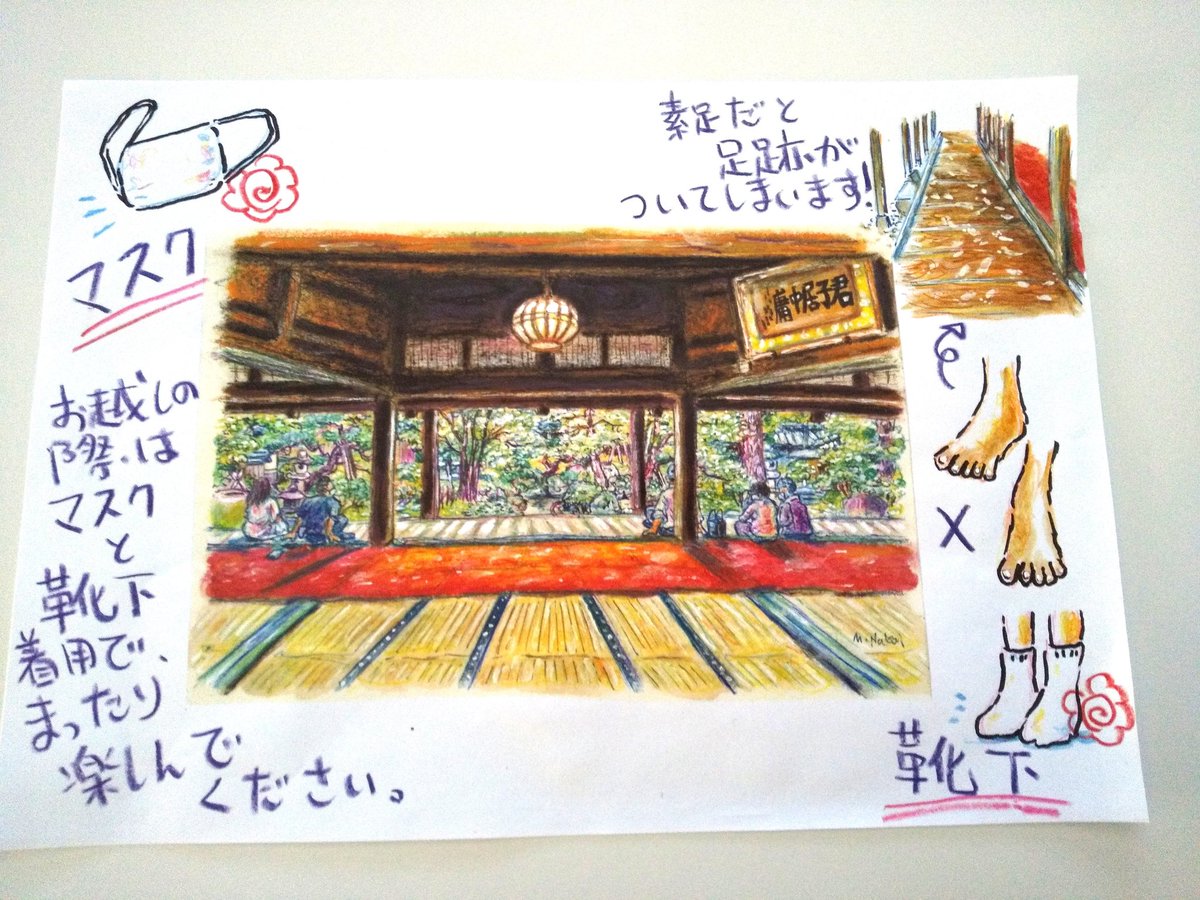 マスク
お越しの
際は
マスク
と
靴下
着用で、
まったり
楽しんで
ください。
素足だと
足跡が
ついてしまいます!
君子居中庸
×
靴下